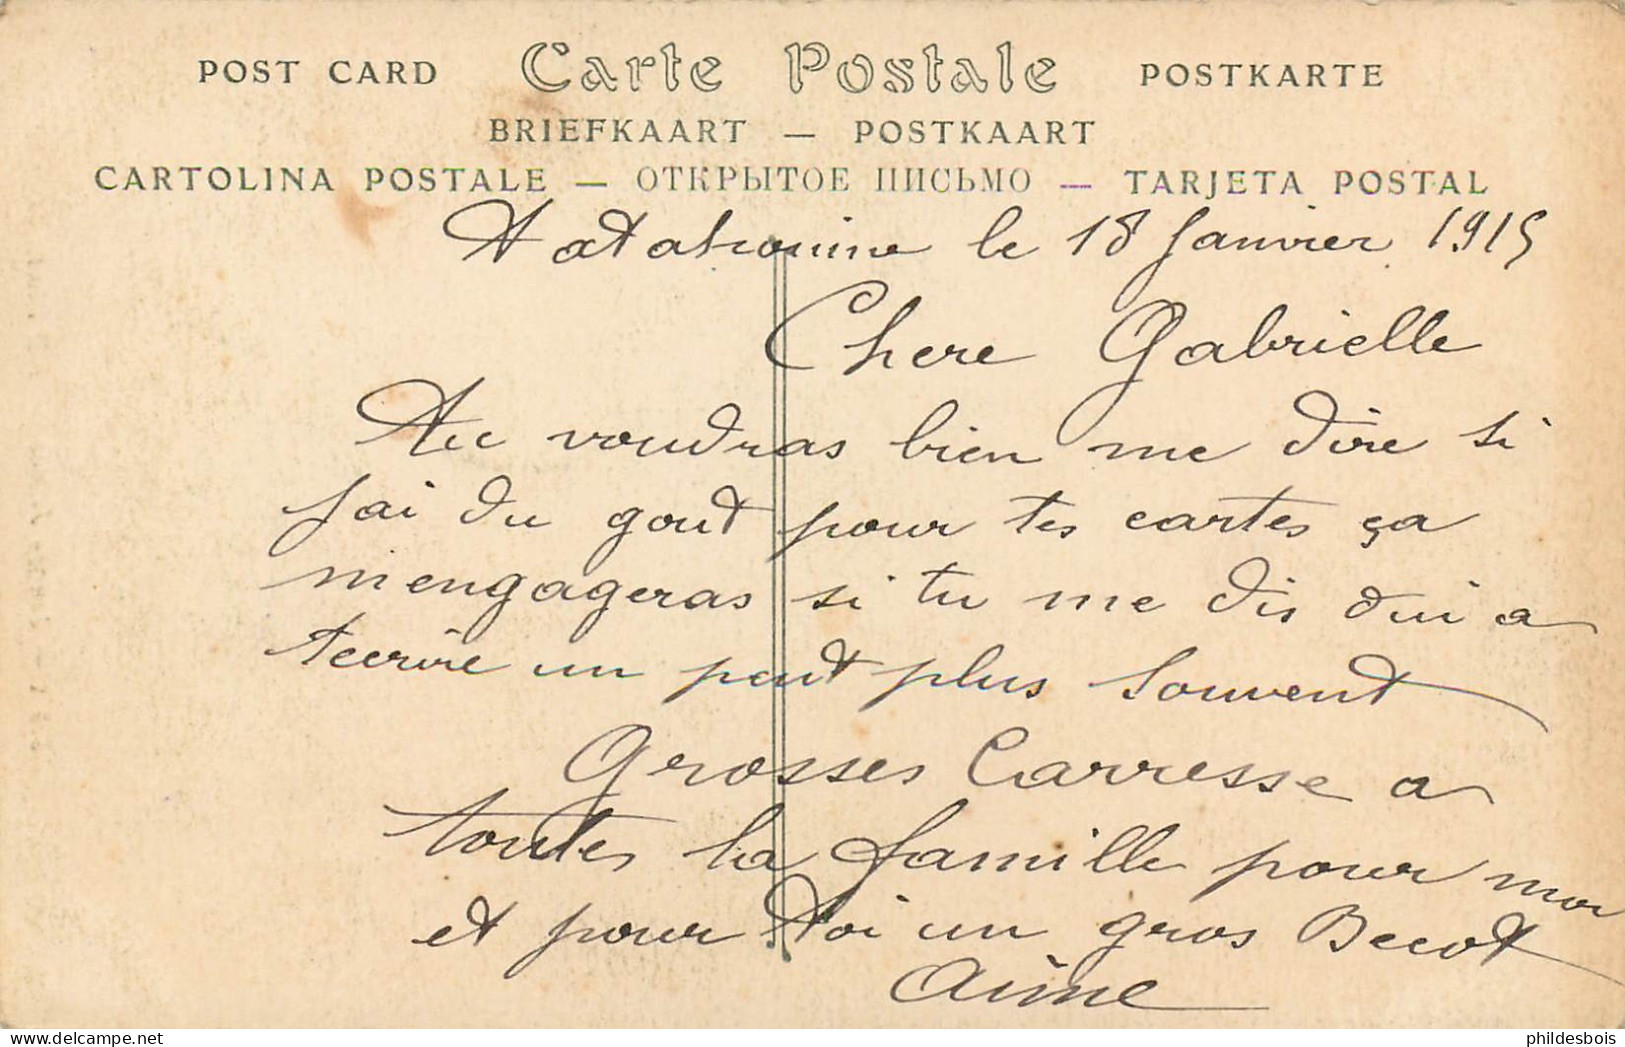 POST CARD Carte Postale POSTKARTE
BRIEFKAART — POSTKAART
CARTOLINA POSTALE — ОТКРЫТОЕ ПИСЬМО — TARJETA POSTAL
le 18 Janvier 1915
Chere Gabrielle
Tu voudras bien me dire si
jai du gout pour tes cartes ça
mengageras si tu me dis oui a
tecrire un peut plus souvent
Grosses Carresse a
toutes la famille pour moi
et pour toi un gros Becot
Aimé
delcampe.net
phildesbois